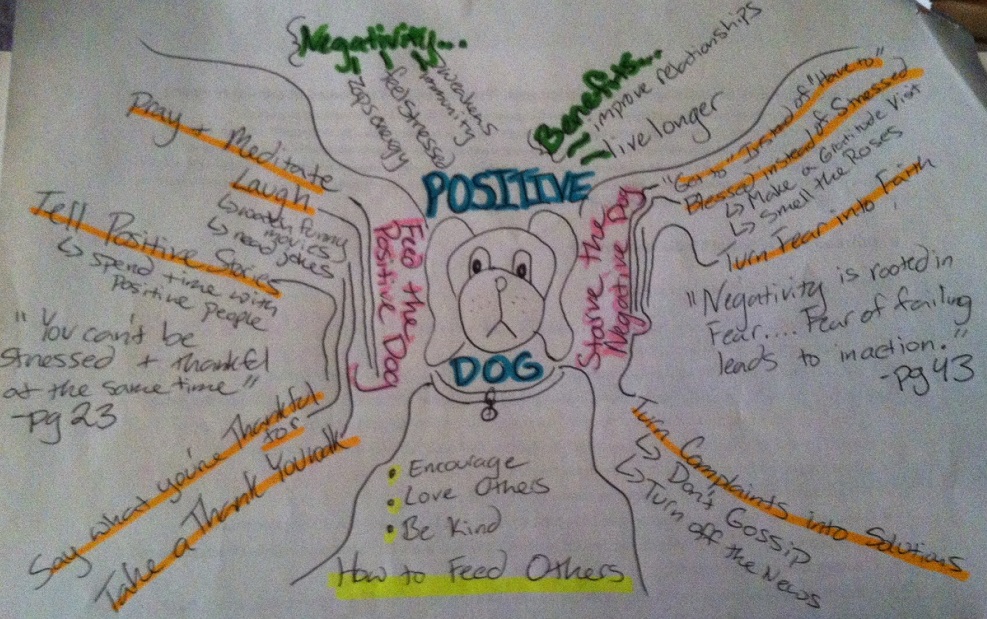 Negativity...
zaps energy
feel stressed
weakens
immunity
Benefits...
improve relationships
live longer
POSITIVE
DOG
Feed the
Positive Dog
Pray + Meditate
Laugh
↳ watch funny
movies
↳ read jokes
Tell Positive Stories
↳ spend time with
Positive people
"You can't be
stressed + thankful
at the same time"
-pg 23
Say what you're Thankful
for
Take a Thank You walk
Starve the
Negative Dog
"Get to" Instead of "Have to"
Blessed instead of Stressed
↳ Make a Gratitude Visit
↳ Smell the Roses
Turn Fear into Faith
"Negativity is rooted in
Fear.... Fear of failing
leads to inaction."
-pg 43
Turn Complaints into Solutions
↳ Don't Gossip
↳ Turn off the News
• Encourage
• Love Others
• Be Kind
How to Feed Others